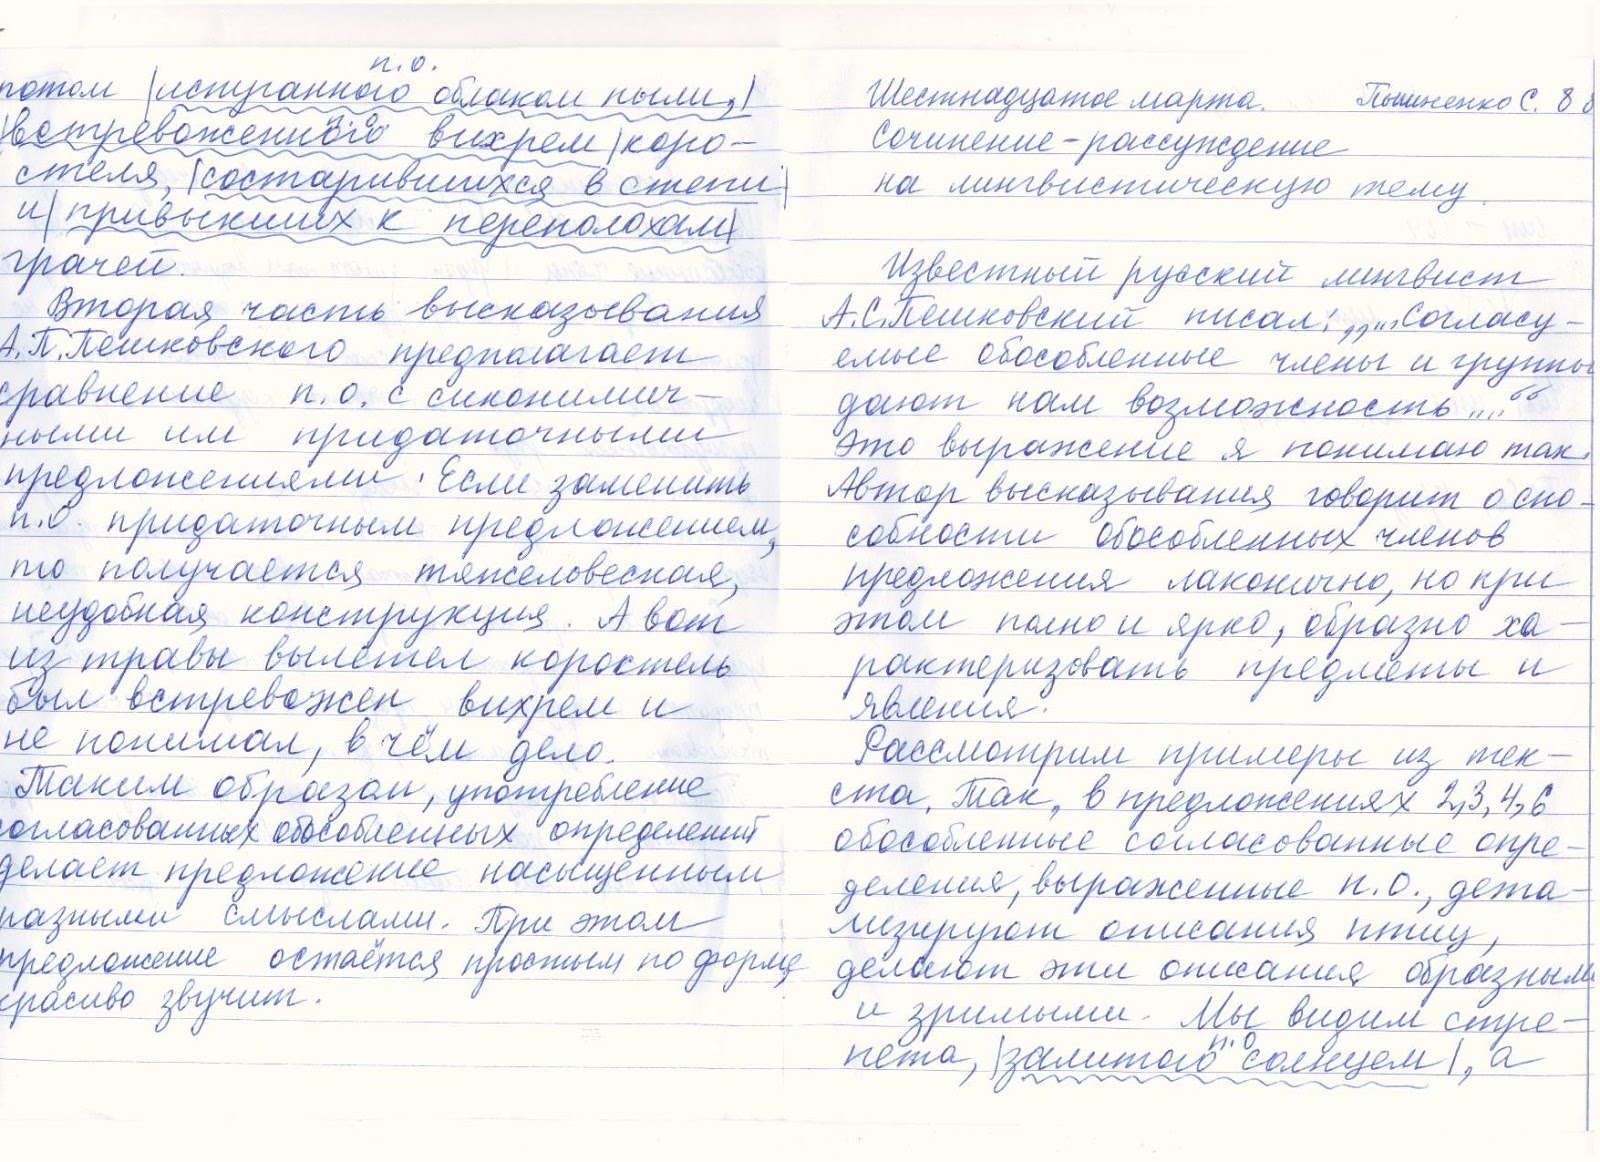 Шестнадцатое марта. С. 8
Сочинение-рассуждение
на лингвистическую тему.
Известный русский лингвист
А.С.Пешковский писал: „...Согласу-
емые обособленные члены и группы
дают нам возможность ...“
Это выражение я понимаю так.
Автор высказывания говорит о спо-
собности обособленных членов
предложения лаконично, но при
этом полно и ярко, образно ха-
рактеризовать предметы и
явления.
Рассмотрим примеры из тек-
ста. Так, в предложениях 2,3,4,6
обособленные согласованные опре-
деления, выраженные п.о., дета-
лизируют описания птиц,
делают эти описания образными
и зримыми. Мы видим стре-
п.о
пета, |залитого солнцем|, а
п.о.
потом |испуганного облаком пыли,|
п.о
|встревоженного вихрем| коро-
стеля, |состарившихся в степи|
и |привыкших к переполохам|
грачей.
Вторая часть высказывания
А.П.Пешковского предполагает
сравнение п.о. с синонимич-
ными им придаточными
предложениями. Если заменить
п.о. придаточным предложением,
то получается тяжеловесная,
неудобная конструкция. А вот
из травы вылетел коростель
был встревожен вихрем и
не понимал, в чём дело.
Таким образом, употребление
согласованных обособленных определений
делает предложение насыщенным
разными смыслами. При этом
предложение остаётся простым по форме
красиво звучит.